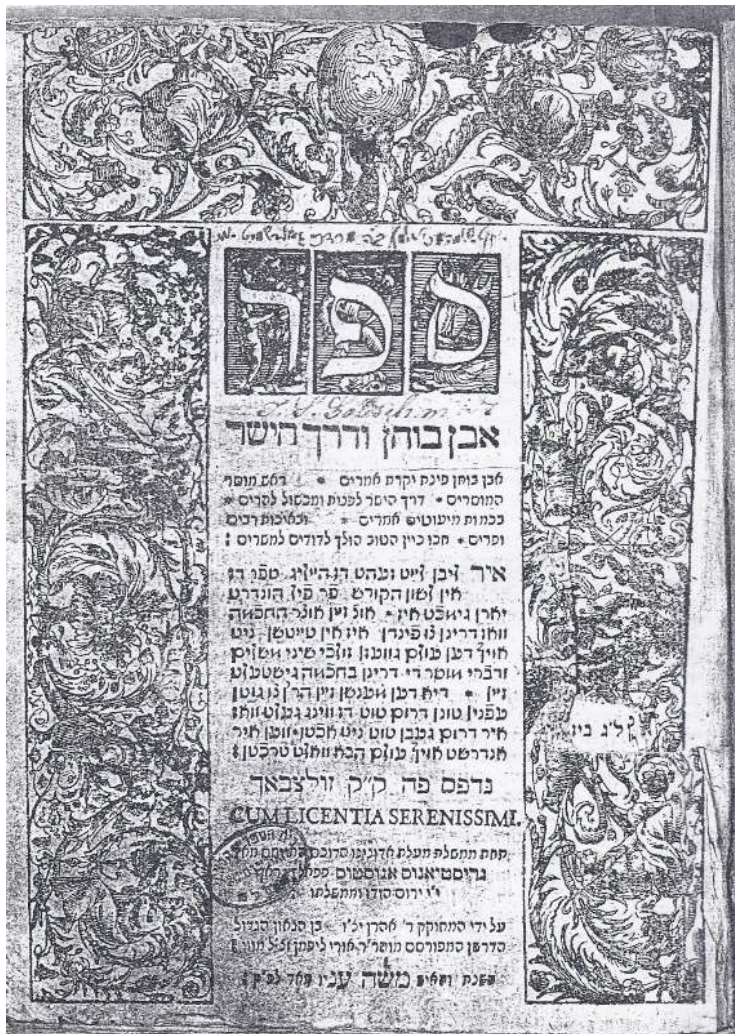 ספר
אבן בוחן ודרך הישר
אבן בוחן פינת יקרת אמרים * ראש מוסר
המוסרים * דרך הישר לפנות ומכשול להרים *
בכמות מיעוטים אמרים * ובאיכות רבים
ופרים * חכו כיין הטוב הולך לדודים למשרים :
איר ליבן לייט זעהט דז הייליג ספר דז
אין לשון הקודש פר פיל הונדרט
יארן גימאכט איז * אונ' זיין אונר החכמה
דרינן צו פינדן איז אין טייטשן ניט
אויף דען עולם
ודברי מוסר די דרינן בחכמה גישטעלט
זיין * דיא דען מענשן זיין הרץ צו גוטן
עפנין טונן דרום טוט דז ווינג געלט וואז
איר דרום געבן טוט ניט אכטן ווען איר
אנדרשט אויף עולם הבא וואלט טרכטן :
נדפס פה ק"ק זולצבאך
CUM LICENTIA SERENISSIMI.
תחת ממשלת מעלת אדונינו
קריסטיאנוס אגוסטוס
י"י ירום הודו וממשלתו
על ידי המחוקק ר' אהרן יצ"ו בן הגאון הגדול
הדרשן המפורסם מוהר"ר אורי ליפמן זצ"ל
בשנת והאיש משה עניו מאד לפ"ק :